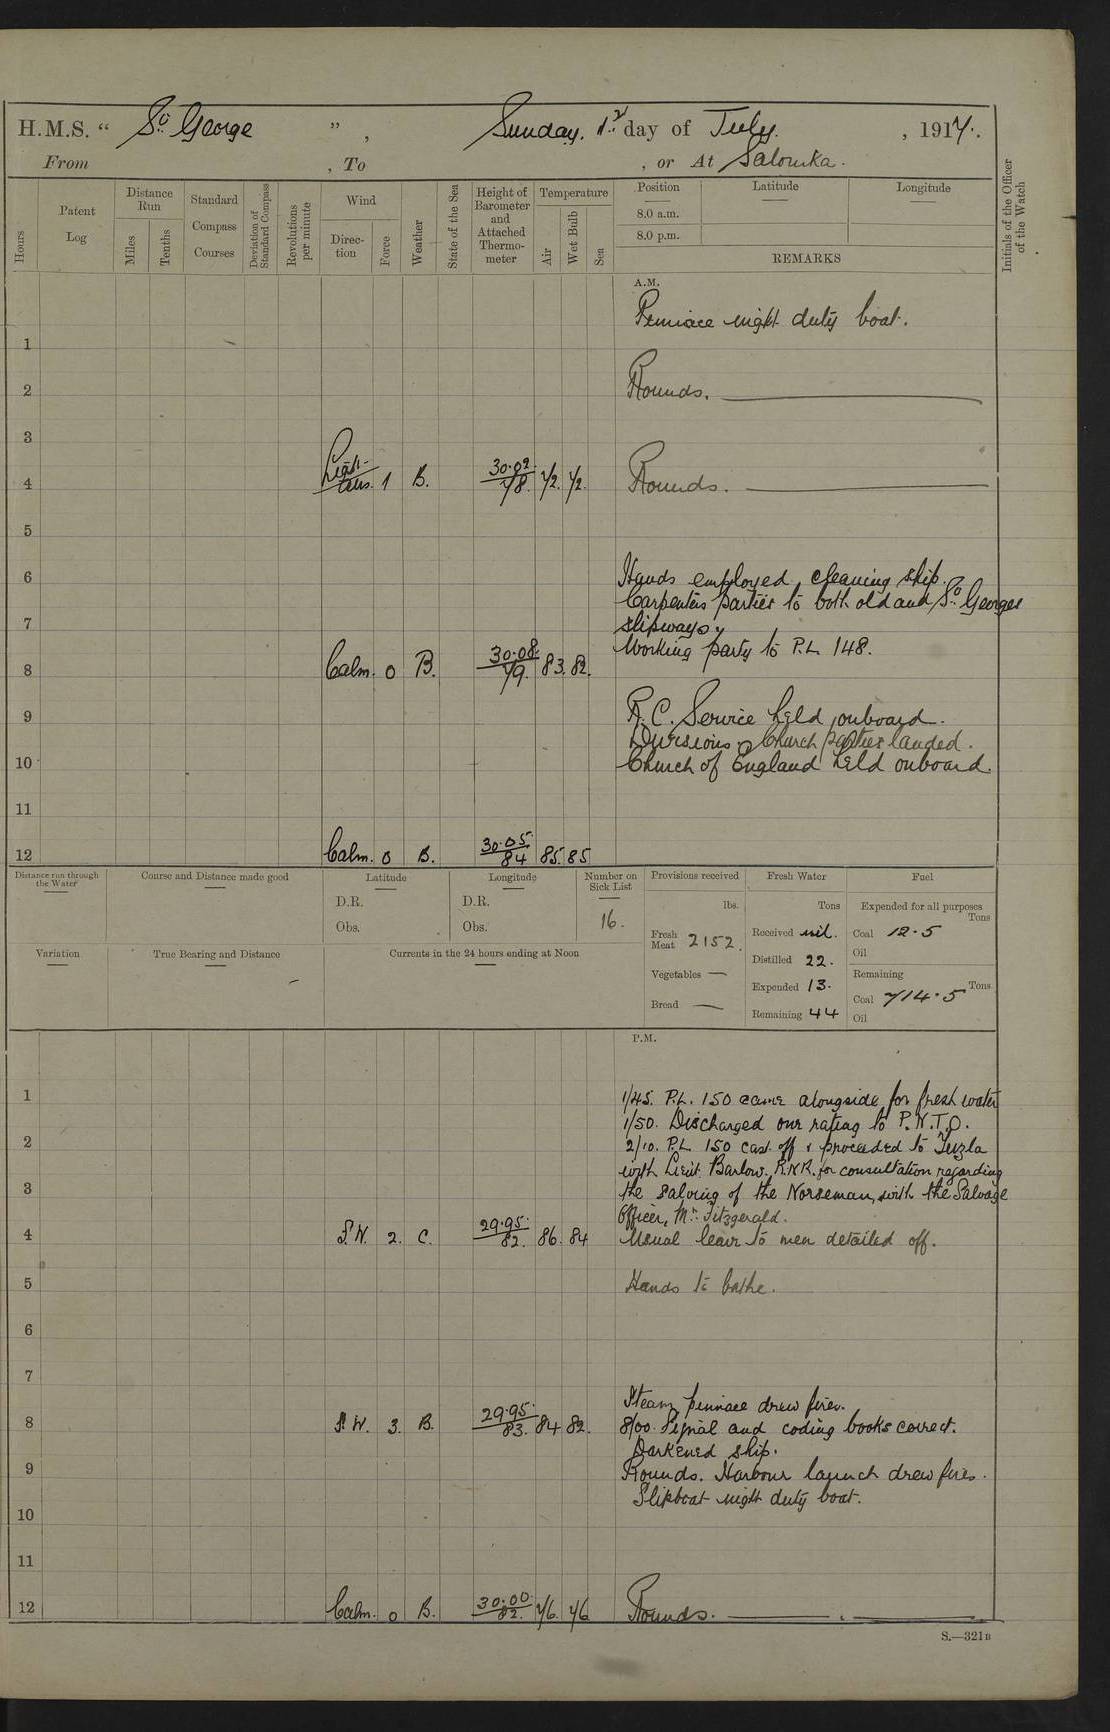 H.M.S. " St. George " , Sunday. 1st day of July. , 1917.
From , To , or At Salonika.
Hours
Patent Log
Distance Run
Miles
Tenths
Standard Compass Courses
Deviation of Standard Compass
Revolutions per minute
Wind
Direction
Force
Weather
State of the Sea
Height of Barometer and Attached Thermometer
Temperature
Air
Wet Bulb
Sea
Position Latitude Longitude
8.0 a.m.
8.0 p.m.
REMARKS
Initials of the Officer of the Watch
A.M.
Pinnace night duty boat.
1
2 Rounds.
3
4 Light airs. 1 B. 30.02 78. 72. 72. Rounds.
5
6 Hands employed, cleaning ship.
Carpenters parties to both old and St. Georges
7 slipways.
Working party to P.L. 148.
8 Calm. 0 B. 30.08. 79. 83. 82.
9 R.C. Service held onboard.
Divisions & Church parties landed.
10 Church of England held onboard.
11
12 Calm. 0 B. 30.05. 84 85. 85
Distance run through the Water
Course and Distance made good
Latitude
D.R.
Obs.
Longitude
D.R.
Obs.
Number on Sick List
16.
Provisions received
lbs.
Fresh Meat 2152.
Vegetables —
Bread —
Fresh Water
Tons
Received nil.
Distilled 22.
Expended 13.
Remaining 44
Fuel
Expended for all purposes
Tons
Coal 12.5
Oil
Remaining
Tons
Coal 714.5
Oil
Variation
True Bearing and Distance
Currents in the 24 hours ending at Noon
P.M.
1 1/45. P.L. 150 came alongside for fresh water
1/50. Discharged one rating to P.N.T.O.
2 2/10. P.L. 150 cast off & proceeded to Tuzla
with Lieut. Barlow. R.N.R. for consultation regarding
3 the salving of the Norseman, with the Salvage
Officer, Mr. Fitzgerald.
4 S.W. 2. C. 29.95. 82. 86. 84 Usual leave to men detailed off.
5 Hands to bathe.
6
7
Steam pinnace drew fires.
8 S.W. 3. B. 29.95. 83. 84 82. 8/00. Signal and coding books correct.
Darkened ship.
9 Rounds. Harbour launch drew fires.
Slipboat night duty boat.
10
11
12 Calm. 0 B. 30.00. 82. 76. 76 Rounds.
S.—321B